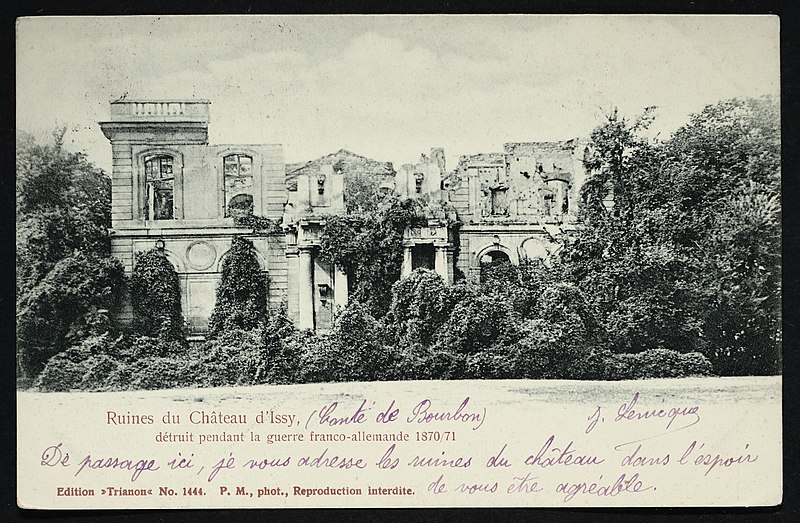 Ruines du Château d'Issy, (Conté de Bourbon)
détruit pendant la guerre franco-allemande 1870/71
De passage ici, je vous adresse les ruines du château dans l'espoir
de vous être agréable.
Edition »Trianon« No. 1444. P. M., phot., Reproduction interdite.